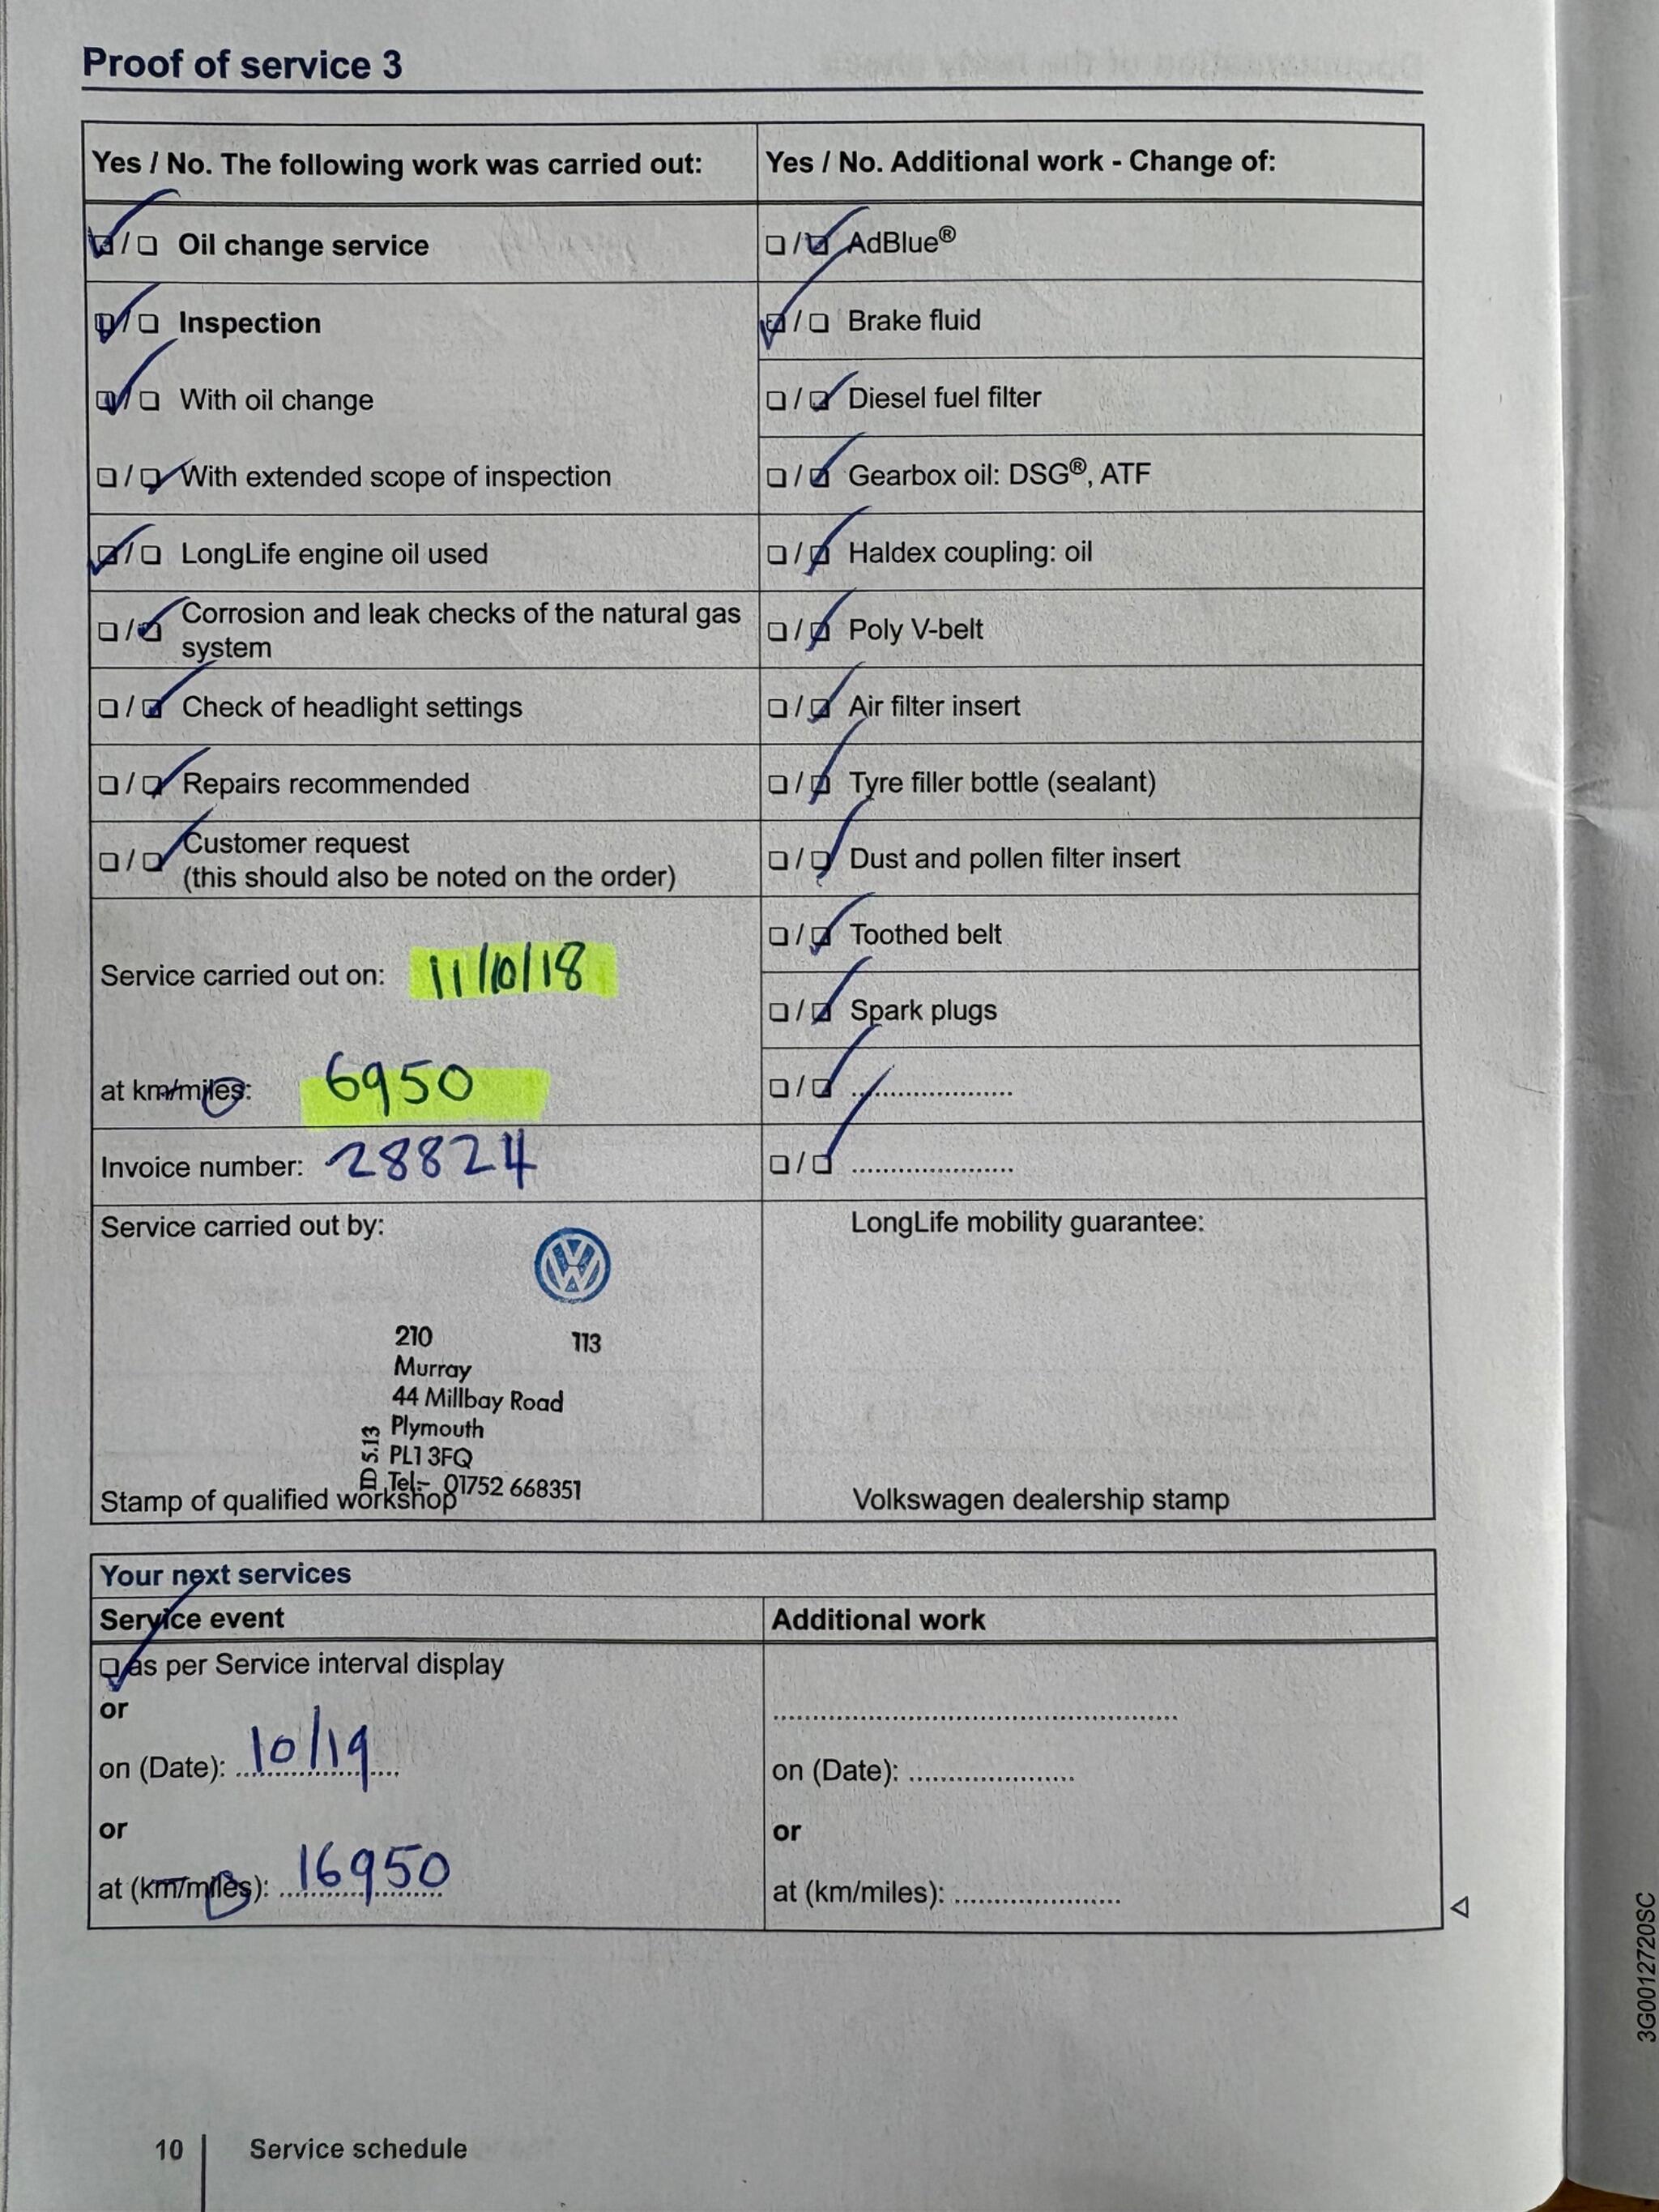 Proof of service 3
Yes / No. The following work was carried out:
Oil change service
Inspection
With oil change
With extended scope of inspection
LongLife engine oil used
Corrosion and leak checks of the natural gas
system
Check of headlight settings
Repairs recommended
Customer request
(this should also be noted on the order)
Service carried out on: 11/10/18
at km/miles: 6950
Invoice number: 28824
Service carried out by:
210 113
Murray
44 Millbay Road
Plymouth
PL1 3FQ
Tel:- 01752 668351
ID 5.13
Stamp of qualified workshop
Yes / No. Additional work - Change of:
AdBlue®
Brake fluid
Diesel fuel filter
Gearbox oil: DSG®, ATF
Haldex coupling: oil
Poly V-belt
Air filter insert
Tyre filler bottle (sealant)
Dust and pollen filter insert
Toothed belt
Spark plugs
LongLife mobility guarantee:
Volkswagen dealership stamp
Your next services
Service event
as per Service interval display
or
on (Date): 10/19
or
at (km/miles): 16950
Additional work
on (Date):
or
at (km/miles):
10 Service schedule
3G0012720SC